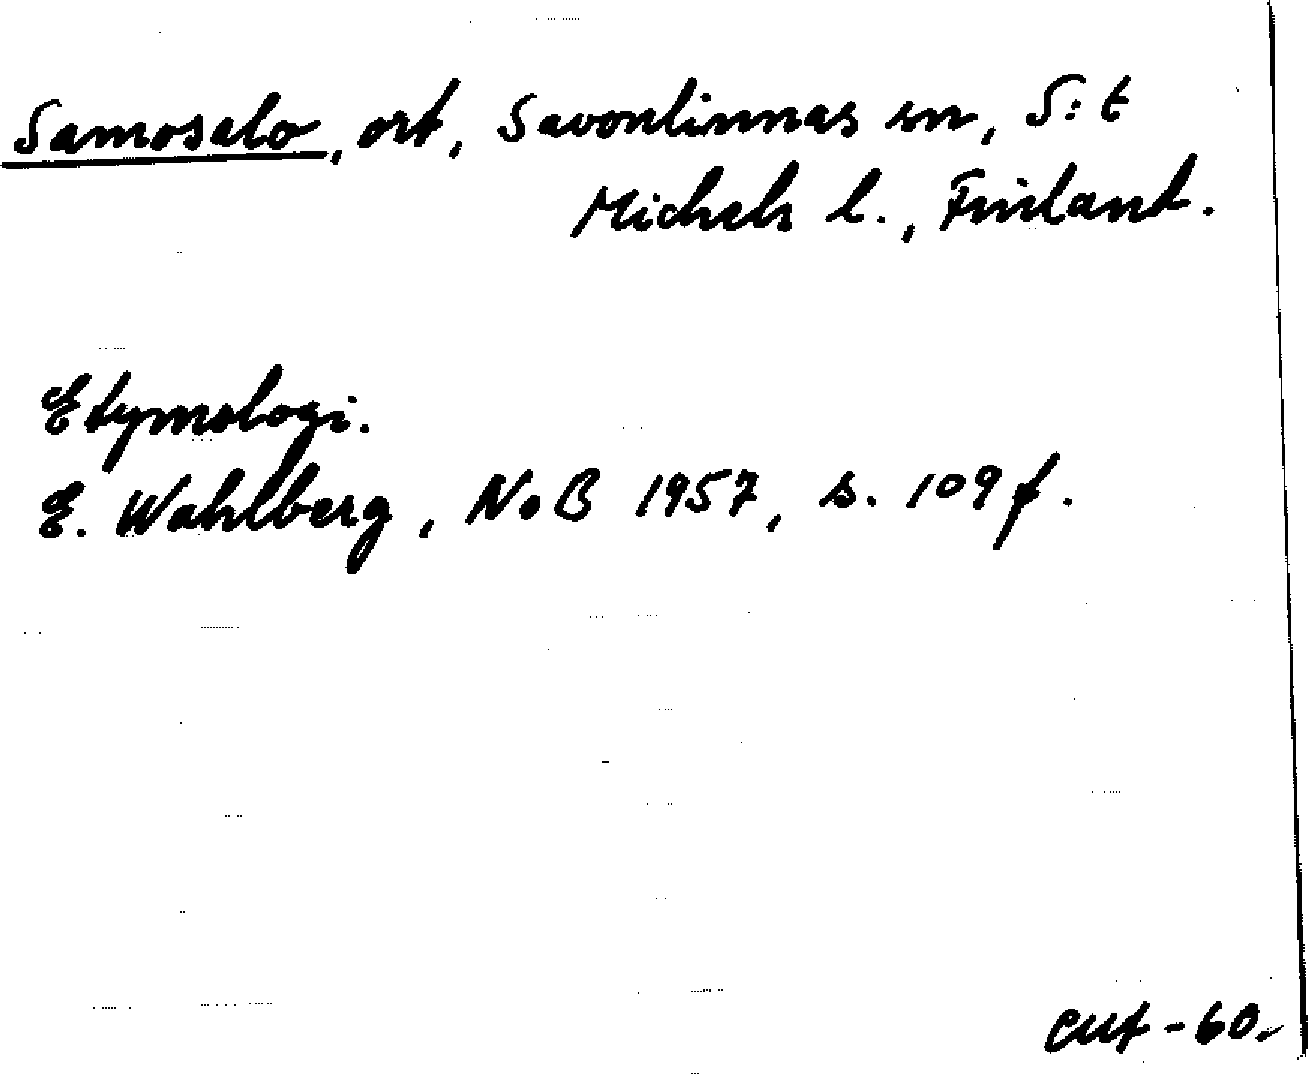 Samosalo, ort, Savonlinnas sn, S:t
Michels l., Finland.
Etymologi.
E. Wahlberg, NoB 1957, s. 109 f.
CUf -60.